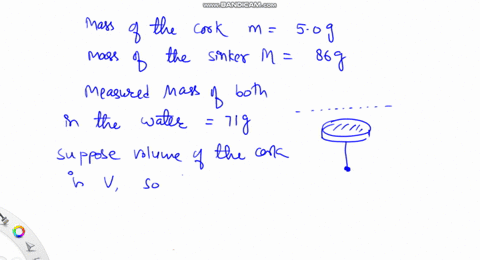 WWW.BANDICAM.COM
Mass of the cork m = 5.0 g
mass of the sinker M = 86g
Measured Mass of both
in the water = 71g
suppose volume of the cork
is V, so